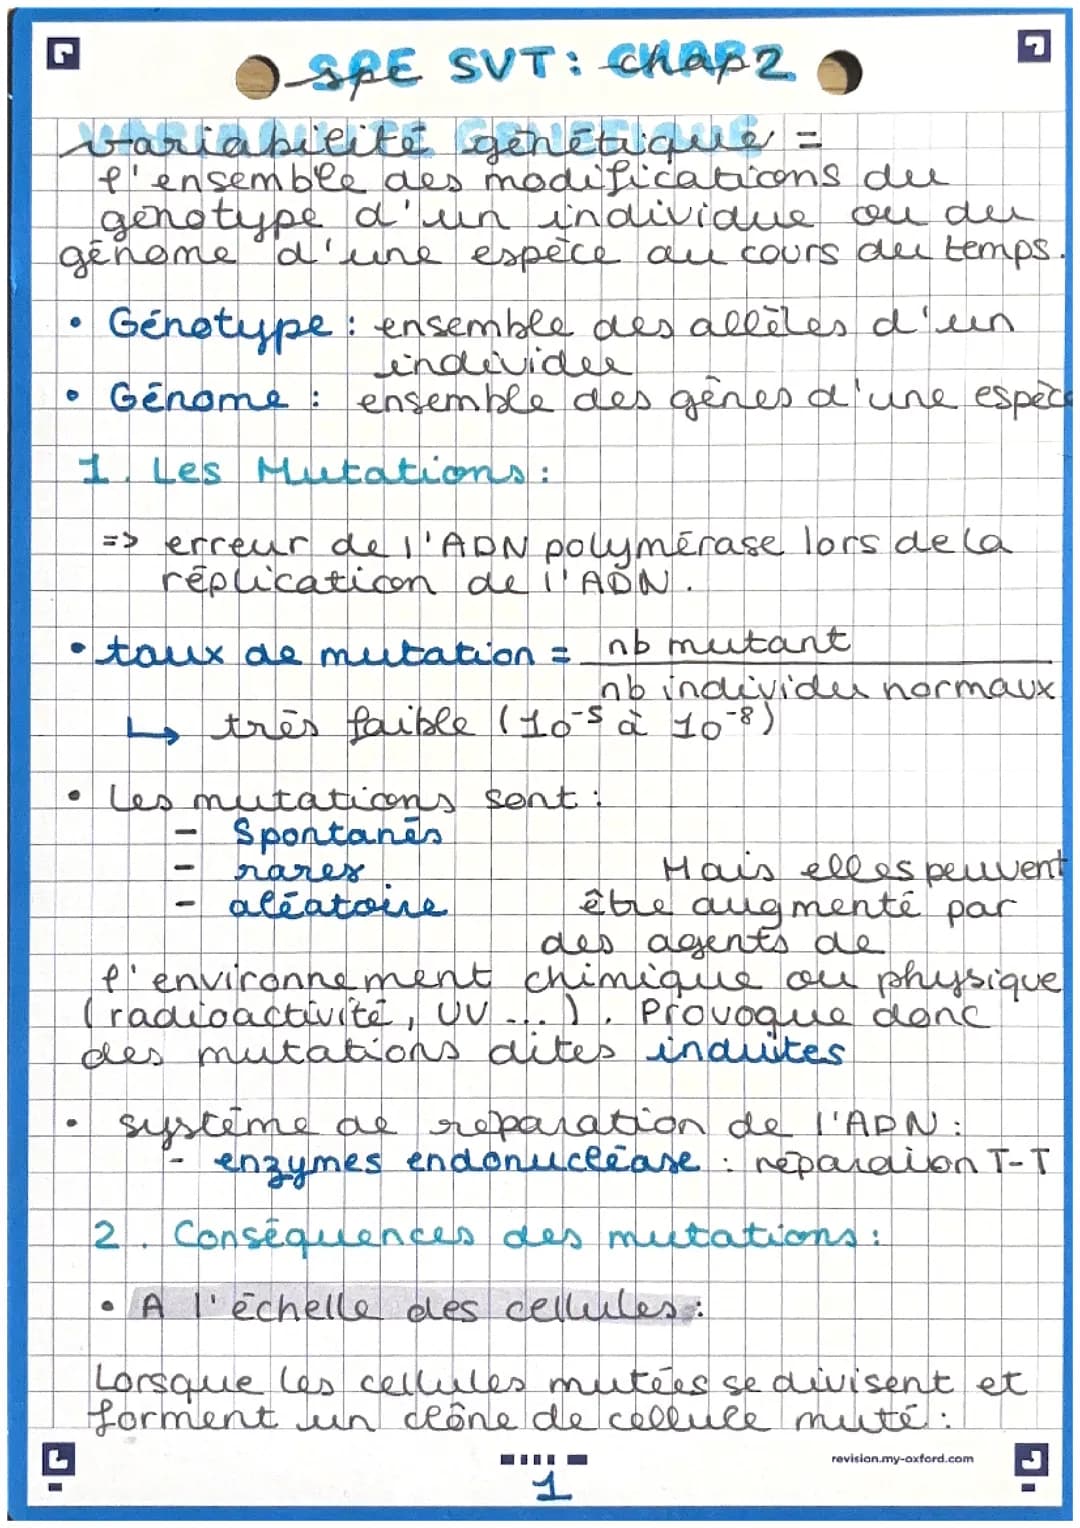 SPE SVT: Chap2
variabilité génétique =
l'ensemble des modifications du
génotype d'un individue ou du
génome d'une espèce au cours du temps.
• Génotype : ensemble des allèles d'un
individue
• Génome : ensemble des gènes d'une espèce
1. Les Mutations :
=> erreur de l'ADN polymérase lors de la
réplication de l'ADN.
• taux de mutation = nb mutant
nb individu normaux
↳ très faible (10⁻⁵ à 10⁻⁸)
• les mutations sont :
- Spontanés
- rares
Mais elles peuvent
- aléatoire
être augmenté par
des agents de
l'environnement chimique ou physique
(radioactivité, UV ...). Provoque donc
des mutations dites induites
• système de réparation de l'ADN :
- enzymes endonucléase : réparaion T-T
2. Conséquences des mutations :
• A l'échelle des cellules :
Lorsque les cellules mutées se divisent et
forment un clône de cellule muté :
revision.my-oxford.com
1